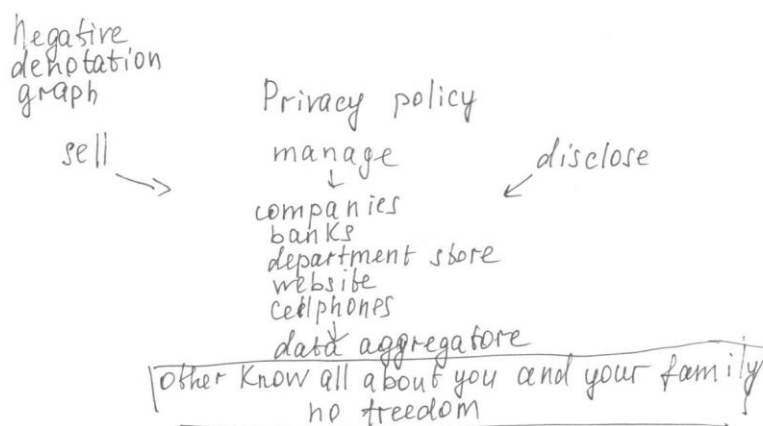 Negative
denotation
graph
Privacy policy
sell
manage
disclose
companies
banks
department store
website
cellphones
data aggregatore
other know all about you and your family
no freedom